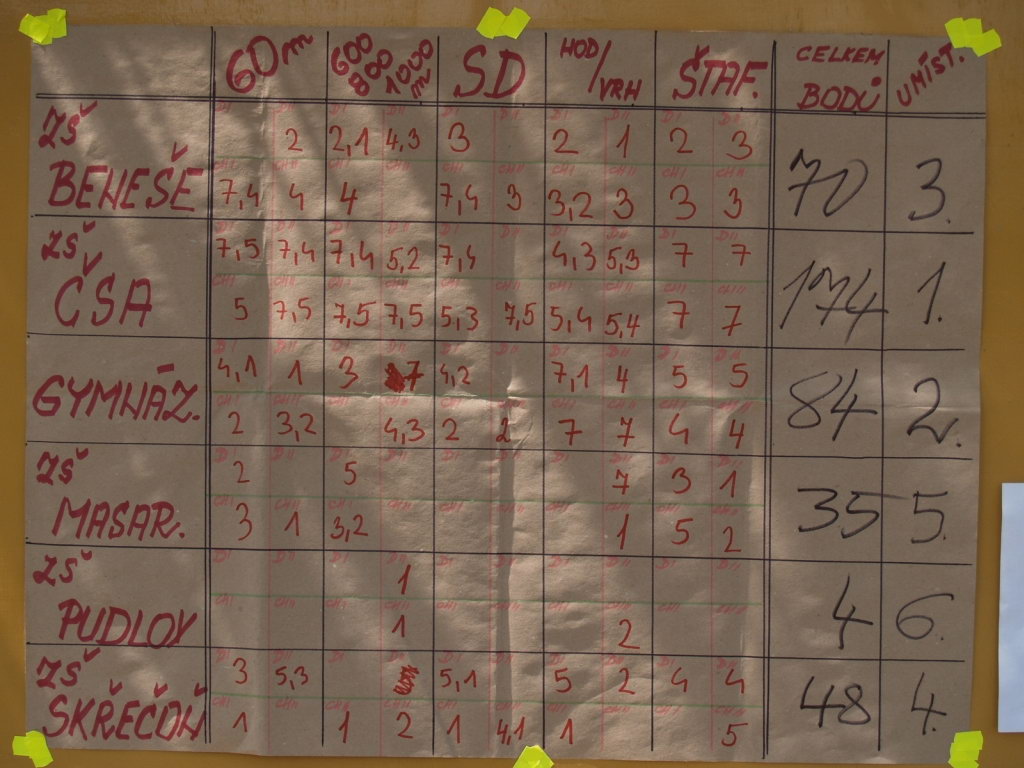 60m 600 800 1000 m SD HOD/VRH ŠTAF. CELKEM BODŮ UMÍST.
ZŠ BENEŠE
2 2,1 4,3 3 2 1 2 3
7,4 4 4 7,4 3 3,2 3 3 3
70 3.
ZŠ ČSA
7,5 7,4 7,4 5,2 7,4 4,3 5,3 7 7
5 7,5 7,5 7,5 5,3 7,5 5,4 5,4 7 7
174 1.
GYMNÁZ.
4,1 1 3 7 4,2 7,1 4 5 5
2 3,2 4,3 2 2 7 7 4 4
84 2.
ZŠ MASAR.
2 5 7 3 1
3 1 3,2 1 5 2
35 5.
ZŠ PUDLOV
1
1 2
4 6.
ZŠ SKŘEČOŇ
3 5,3 5,1 5 2 4 4
1 1 2 1 4,1 1 5
48 4.